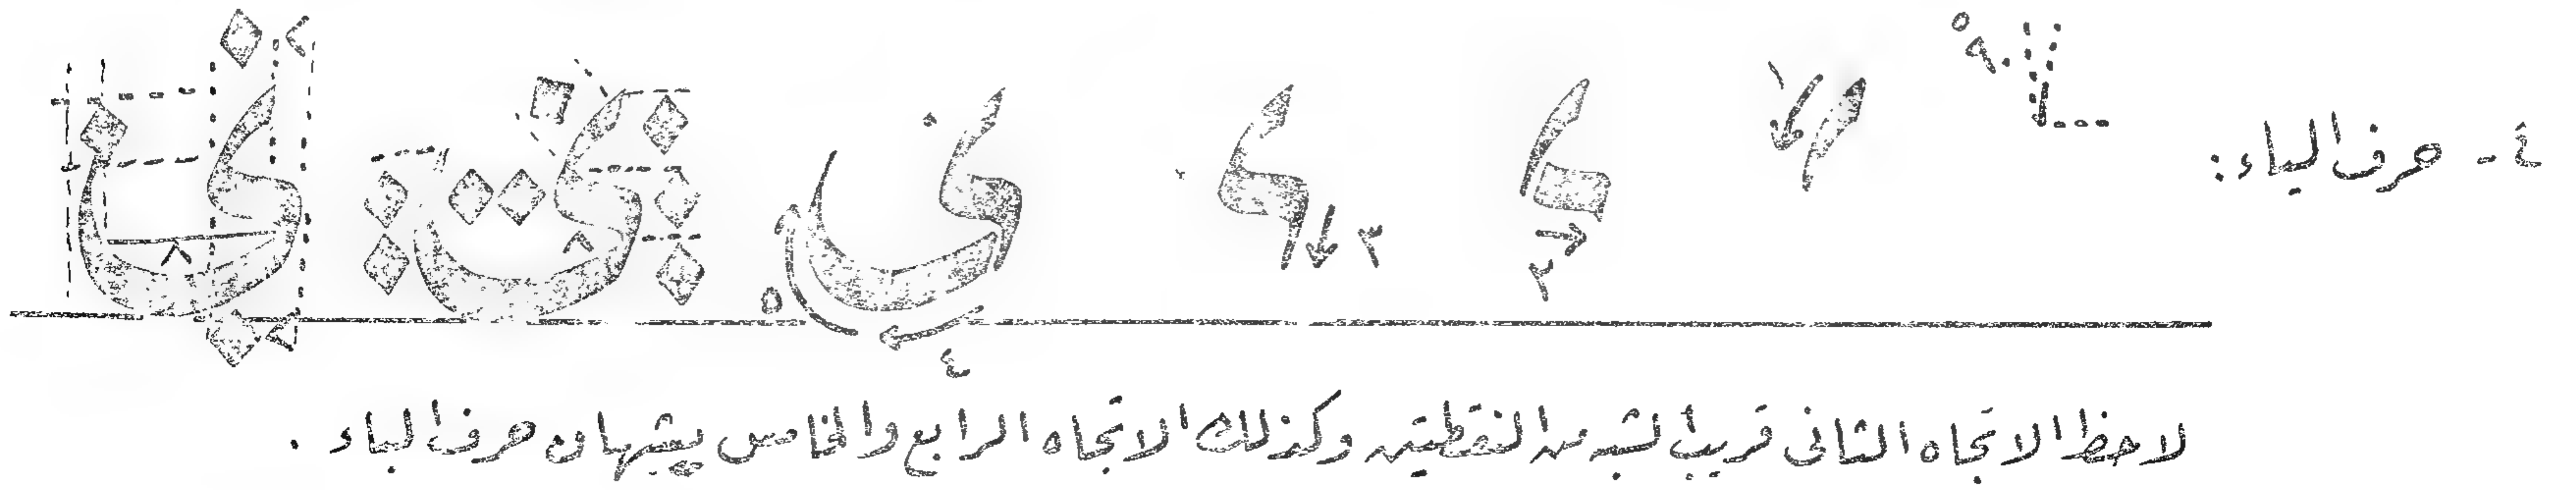 ٤ - حرف الياء :
٩٠°
١
٢
٣
٤
٥
لاحظ الاتجاه الثانى قريب الشبه من النقطتين وكذلك الاتجاه الرابع والخامس يشبهان حرف الباء .